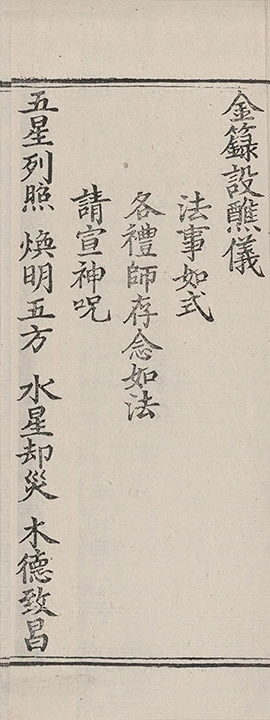 金籙設醮儀
法事如式
各禮師存念如法
請宣神呪
五星列照 煥明五方 水星却災 木德致昌